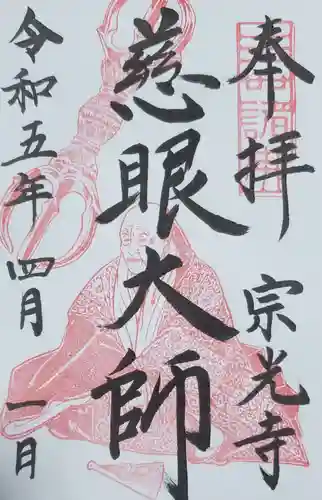 奉拝
宗光寺
慈眼大師
令和五年
四月
一日